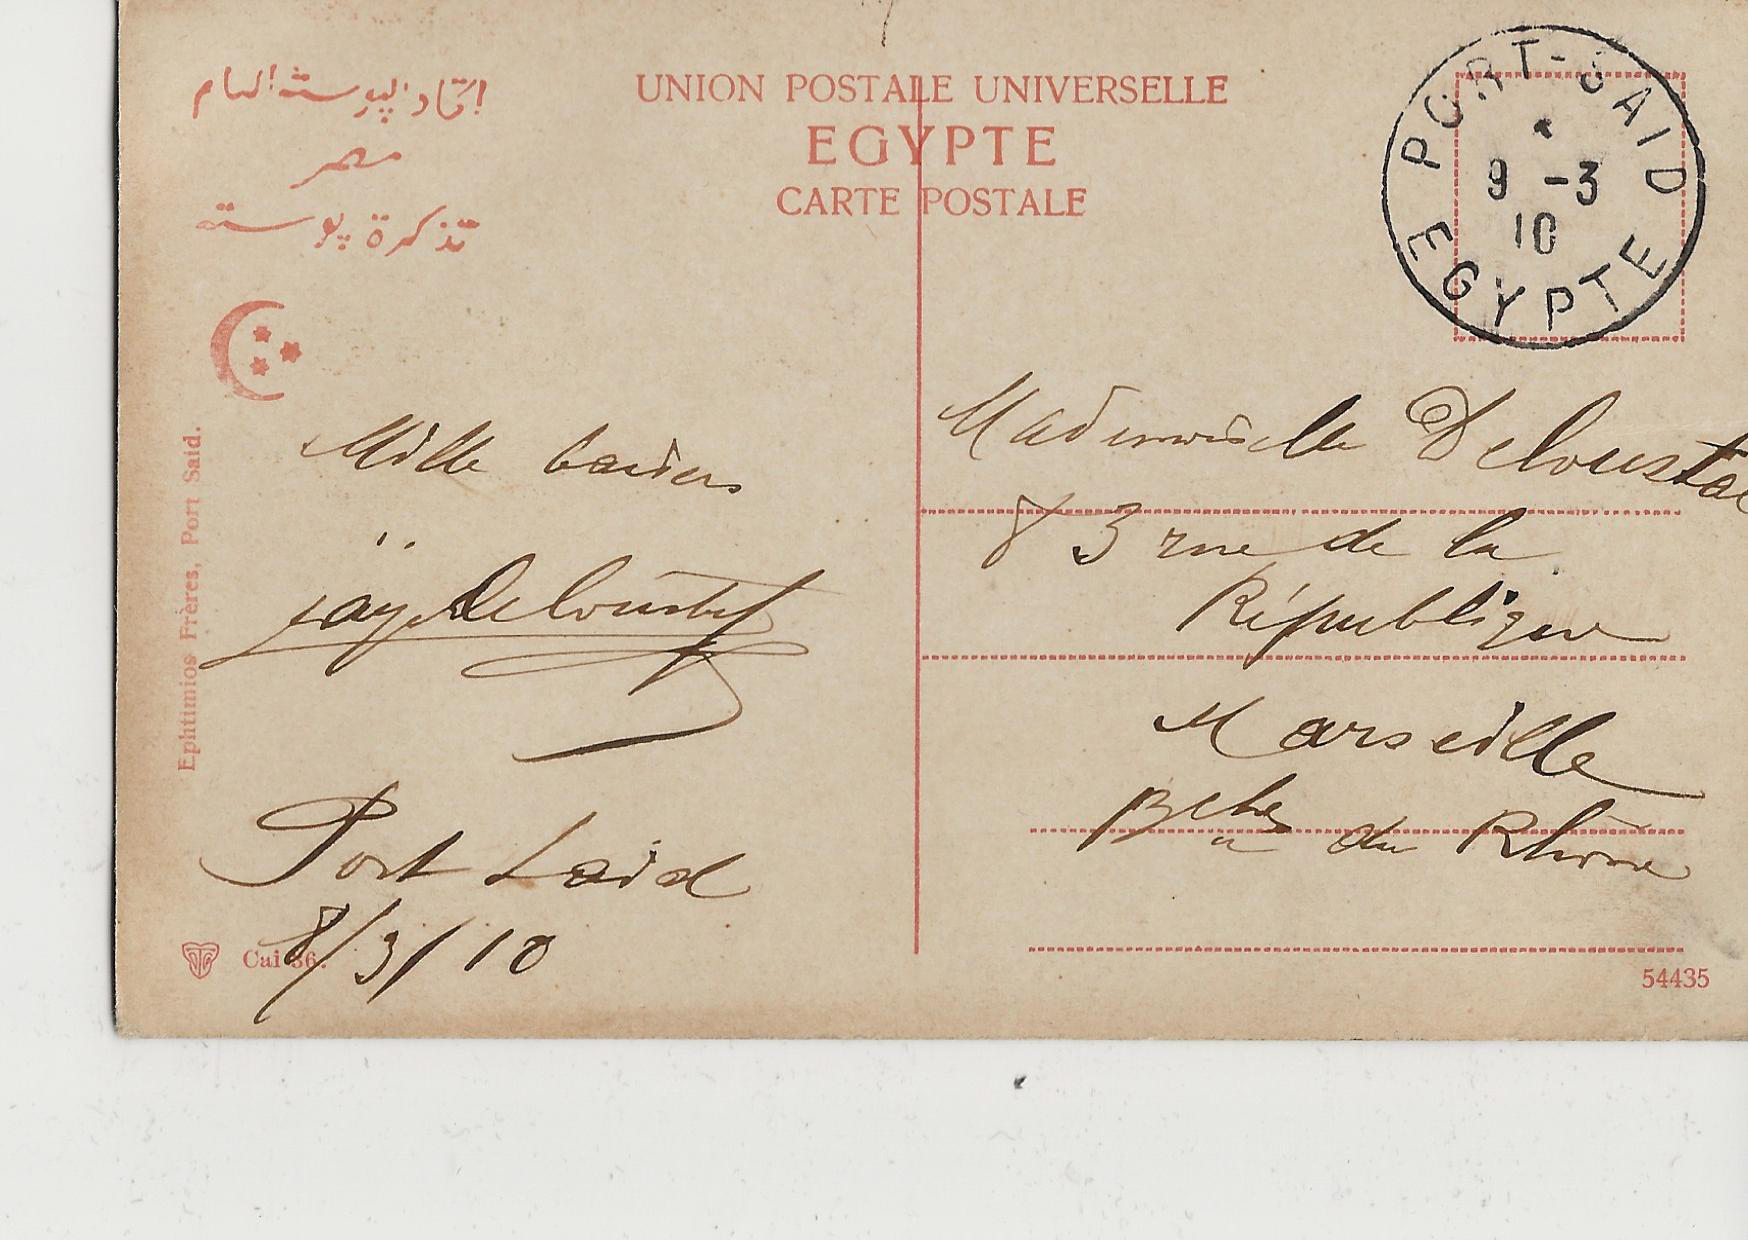 اتحاد البوستة العام
مصر
تذكرة بوستة
UNION POSTALE UNIVERSELLE
EGYPTE
CARTE POSTALE
PORT-SAID
9 -3
10
EGYPTE
Ephtimios Frères, Port Said.
Mille baisers
Deloustal
Port Said
8/3/10
Cai 36.
Mademoiselle Deloustal
83 rue de la
République
Marseille
Bches du Rhône
54435